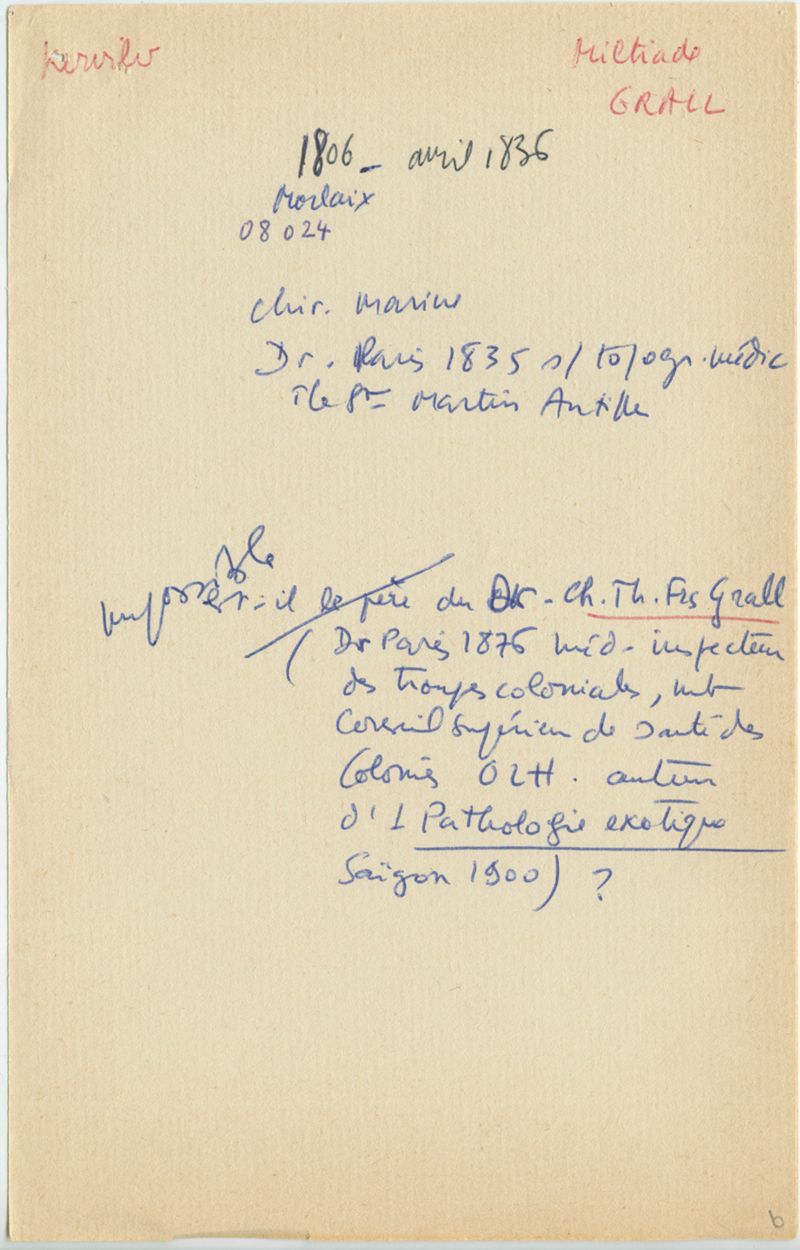 Kerviler
Miltiade
GRALL
1806 - avril 1836
Morlaix
08 024
chir. marine
Dr. Paris 1835 s/ topogr. médic
île St- Martin Antilles
impossible
est-il le père du Dr - Ch. Th. Frs Grall
( Dr Paris 1876 méd- inspecteur
des troupes coloniales, mb
Conseil Supérieur de Santé des
Colonies OLH. auteur
d'1 Pathologie exotique
Saïgon 1900) ?
b